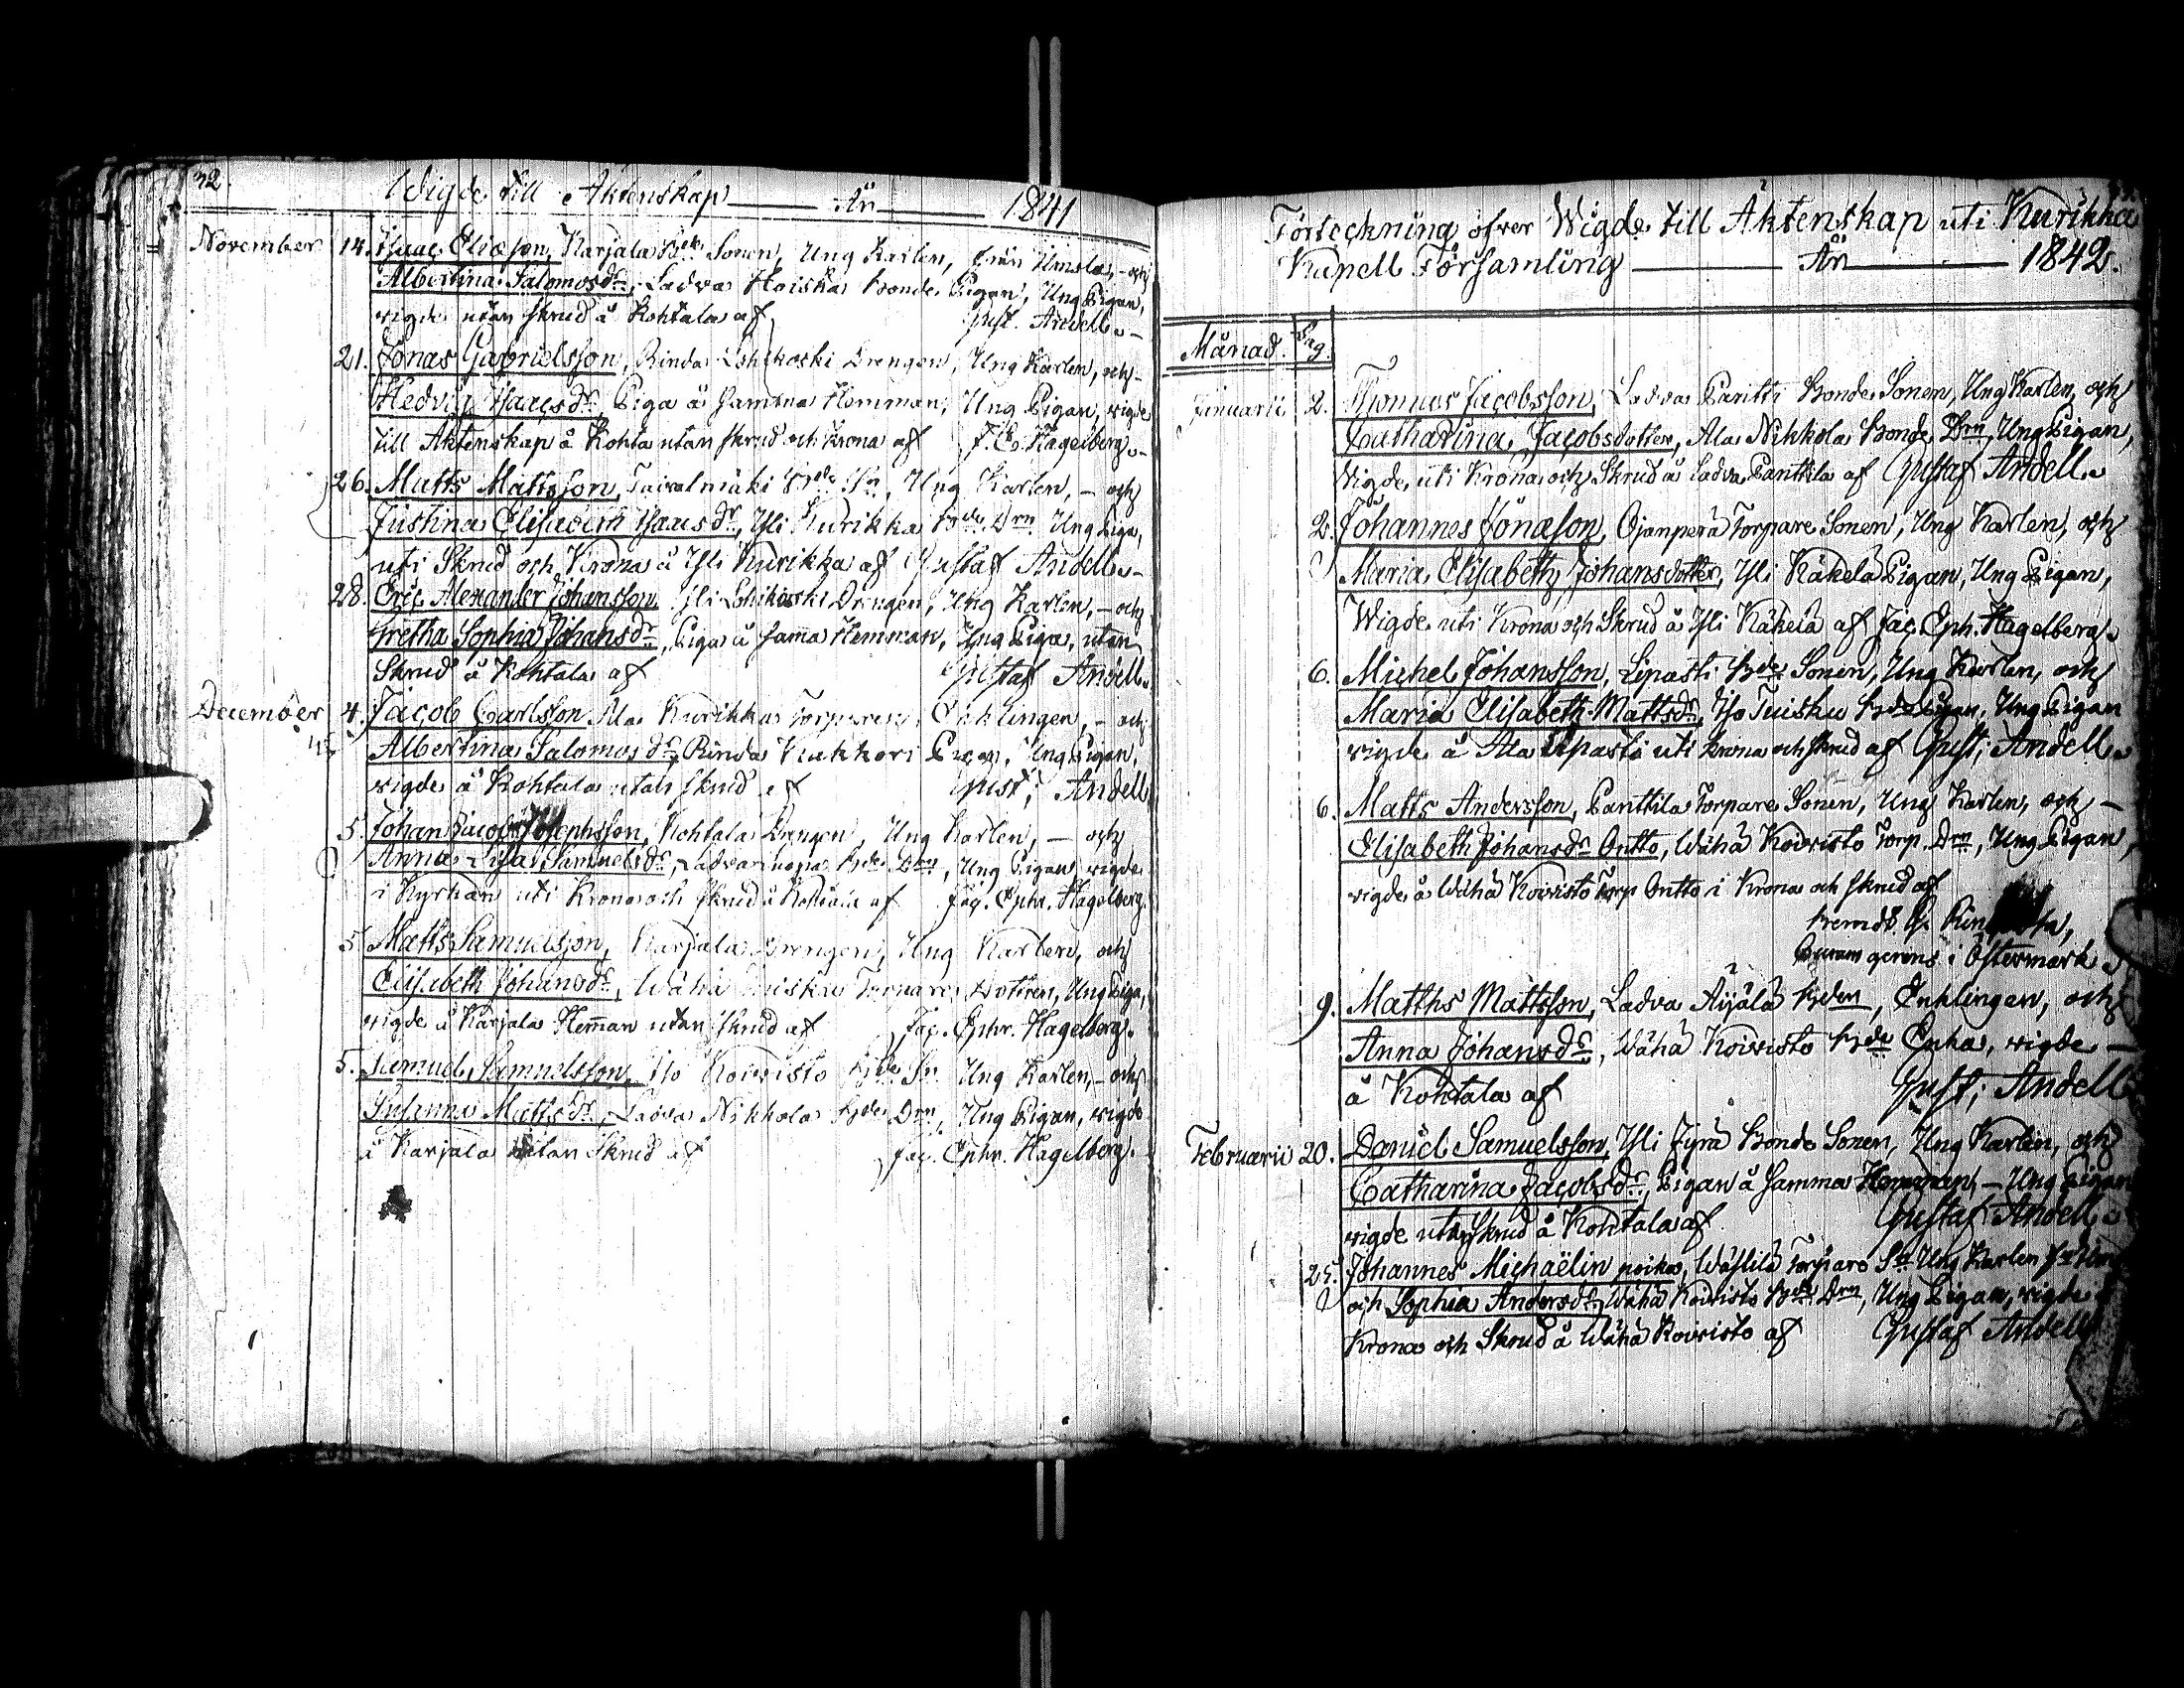 32.
Wigde till Äktenskap År 1841
November 14. Isaac Eliæson, Karjala Bde Sonen, Ung Karlen, från Umola, och
Albertina Salomosdr, Ladva Hoiska bonde Pigan, Ung Pigan,
vigde utan skrud å Kohtala af Gust. Andell.
21. Jonas Gabrielsson, Rinda Drengen, Ung Karlen, och
Hedvig Isacsdr, Piga å samma Hemman, Ung Pigan, vigde
till Äktenskap å Kohta utan skrud och krona af J. E. Hagelberg.
26. Matts Mattsson, Taivalmäki Bde Sn, Ung Karlen, – och
Justina Elisabeth Isaacsdr, Yli Kurikka Bde Drn Ung Piga,
uti Skrud och Krona å Yli Kurikka af Gustaf Andell.
28. Eric Alexander Johansson Yli Lohikoski Drengen, Ung Karlen, – och
Gretha Sophia Johansdr, Piga å samma Hemman, Ung Piga, utan
Skrud å Kohtala af Gustaf Andell.
December 4. Jacob Carlsson Ala Kurikka Torparen, Enklingen, – och
Albertina Salomosdr, Rinda Kukkori Pigan, Ung Pigan,
vigde å Kohtala utan skrud af Gust; Andell
5. Johan Jacob Josephsson, Kohtala Drengen, Ung Karlen, – och
Anna Lisa Samuelsdr, Bde Drn, Ung Pigan, vigde
i Kyrkan uti Krona och skrud å af Jac. Ephr. Hagelberg.
5. Matts Samuelsson, Karjala Drengen, Ung Karlen, och
Elisabeth Johansdr, Wähä Tuisku Torpare Dottren, Ung Piga,
vigde å Karjala Hemman utan skrud af Jac. Ephr. Hagelberg.
5. Samuel Samuelsson, Iso Koivisto Bde Sn Ung Karlen, – och
Susanna Mattsdr, Ladva Nikkola Bde Drn, Ung Pigan, vigde
å Karjala utan Skrud af Jac. Ephr. Hagelberg.
Förteckning öfver Wigde till Äktenskap uti Kurikka
Kapell Församling År 1842.
Månad. Dag.
Januarii 2. Thomas Jacobsson, Ladva Pantti Bonde Sonen, Ung Karlen, och
Catharina Jacobsdotter, Ala Nikkola Bonde Drn, Ung Pigan,
Vigde uti Krona och Skrud å Ladva Panttila af Gustaf Andell.
2. Johannes Jonæson, Ojanperä Torpare Sonen, Ung Karlen, och
Maria Elisabeth Johansdotter, Yli Käkelä Pigan, Ung Pigan,
Wigde uti Krona och Skrud å Yli Käkelä af Jac. Eph. Hagelberg.
6. Michel Johansson, Lipasti Bde Sonen, Ung Karlen, och
Maria Elisabeth Mattsdr, Iso Tuisku Bde Pigan, Ung Pigan
vigde å Ala Lipasti uti krona och skrud af Gust; Andell.
6. Matts Andersson, Panttila Torpare Sonen, Ung Karlen, och –
Elisabeth Johansdr Ontto, Wähä Koivisto Torp. Drn, Ung Pigan,
vigde å Wähä Koivisto Torp Ontto i Krona och skrud af
i Östermark.
9. Matths Mattsson, Ladva Äijälä Bden, Enklingen, och
Anna Johansdr, Wähä Koivisto Bde Enka, vigde –
å Kohtala af Gust; Andell
Februarii 20. Daniel Samuelsson, Yli Jyrä Bonde Sonen, Ung Karlen, och
Catharina Jacobsdr, Pigan å samma Hemman, – Ung Pigan
vigde utan skrud å Kohtala af Gustaf Andell.
25. Johannes Michaëlin poika, Wästilä Torpare Sn Ung Karlen
och Sophia Andersdr, Wähä Koivisto Bde Drn, Ung Pigan, vigde
Krona och Skrud å Wähä Koivisto af Gustaf Andell